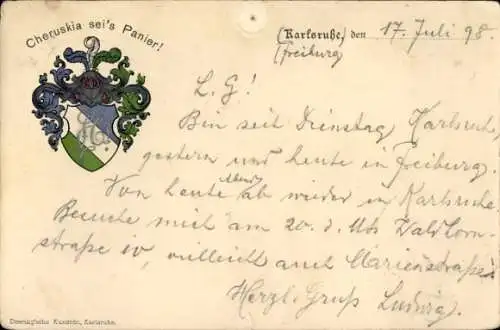 Cheruskia sei's Panier!
(Karlsruhe, den 17. Juli 98.
(Freiburg
L. G!
Bin seit Dienstag Karlsruhe,
gestern und heute in Freiburg.
Von heute Abend ab wieder in Karlsruhe
Besuche mich am 20. d. Mts Waldhorn-
straße 10, vielleicht auch Marienstraße
Herzl. Gruß Ludwig.
Karlsruhe.